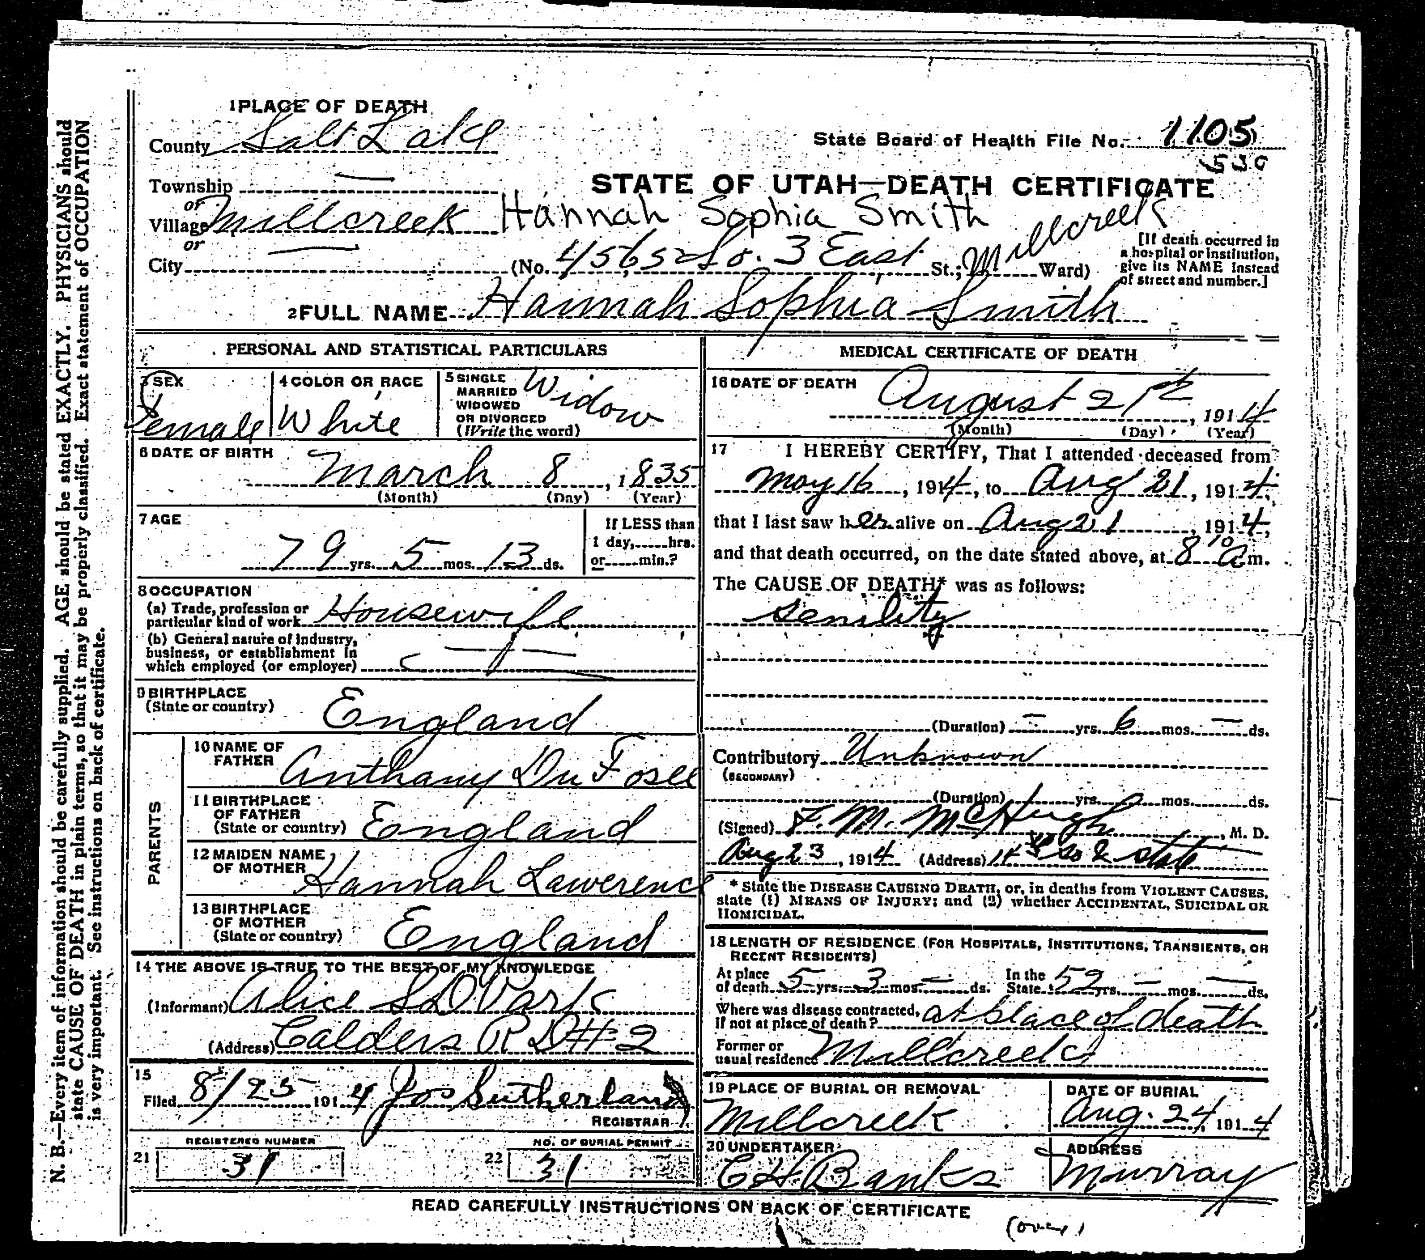 1 PLACE OF DEATH
County Salt Lake
State Board of Health File No. 1105
530
Township
or
STATE OF UTAH—DEATH CERTIFICATE
Village Millcreek Hannah Sophia Smith
or
City (No. 4565 So. 3 East St.; Millcreek Ward)
[If death occurred in
a hospital or institution,
give its NAME instead
of street and number.]
2 FULL NAME Hannah Sophia Smith
PERSONAL AND STATISTICAL PARTICULARS
3 SEX
Female
4 COLOR OR RACE
White
5 SINGLE
MARRIED
WIDOWED
OR DIVORCED
(Write the word)
Widow
6 DATE OF BIRTH
March 8, 1835
(Month) (Day) (Year)
7 AGE
79 yrs. 5 mos. 13 ds.
If LESS than
1 day, hrs.
or min.?
8 OCCUPATION
(a) Trade, profession or
particular kind of work Housewife
(b) General nature of industry,
business, or establishment in
which employed (or employer)
9 BIRTHPLACE
(State or country) England
PARENTS
10 NAME OF
FATHER Anthany Du Fosee
11 BIRTHPLACE
OF FATHER
(State or country) England
12 MAIDEN NAME
OF MOTHER Hannah Lawerence
13 BIRTHPLACE
OF MOTHER
(State or country) England
14 THE ABOVE IS TRUE TO THE BEST OF MY KNOWLEDGE
(Informant) Alice S D Park
(Address) Calders R D #2
15
Filed 8/25 1914 Jos Sutherland
REGISTRAR
21 REGISTERED NUMBER
31
22 NO. OF BURIAL PERMIT
31
MEDICAL CERTIFICATE OF DEATH
16 DATE OF DEATH
August 21st, 1914
(Month) (Day) (Year)
17 I HEREBY CERTIFY, That I attended deceased from
May 16, 1914, to Aug 21, 1914,
that I last saw her alive on Aug 21, 1914,
and that death occurred, on the date stated above, at 8 10 a m.
The CAUSE OF DEATH* was as follows:
senility
(Duration) — yrs. 6 mos. — ds.
Contributory Unknown
(SECONDARY)
(Duration) yrs. mos. ds.
(Signed) F. M. McHugh, M. D.
Aug 23, 1914 (Address) so & state
* State the DISEASE CAUSING DEATH, or, in deaths from VIOLENT CAUSES,
state (1) MEANS OF INJURY; and (2) whether ACCIDENTAL, SUICIDAL OR
HOMICIDAL.
18 LENGTH OF RESIDENCE (FOR HOSPITALS, INSTITUTIONS, TRANSIENTS, OR
RECENT RESIDENTS)
At place
of death 5 yrs. 3 mos. — ds.
In the
State 52 yrs. — mos. — ds.
Where was disease contracted,
if not at place of death? at place of death
Former or
usual residence Millcreek
19 PLACE OF BURIAL OR REMOVAL
Millcreek
DATE OF BURIAL
Aug. 24, 1914
20 UNDERTAKER
C H Banks
ADDRESS
Murray
READ CAREFULLY INSTRUCTIONS ON BACK OF CERTIFICATE
(over)
N. B.—Every item of information should be carefully supplied. AGE should be stated EXACTLY. PHYSICIANS should
state CAUSE OF DEATH in plain terms, so that it may be properly classified. Exact statement of OCCUPATION
is very important. See instructions on back of certificate.